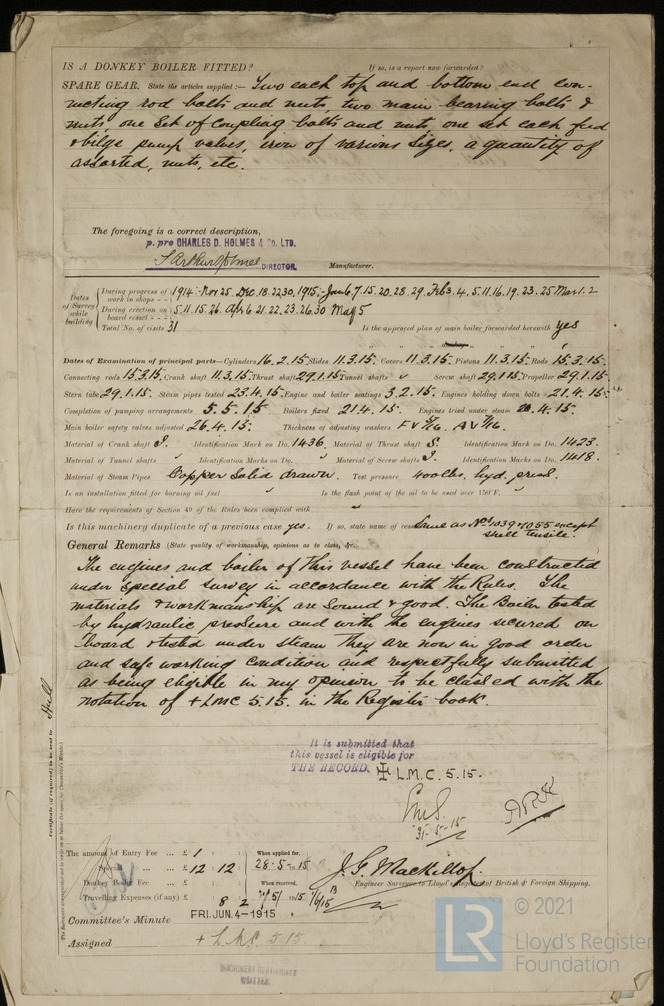 IS A DONKEY BOILER FITTED? If so, is a report now forwarded?
SPARE GEAR. State the articles supplied:— Two each top and bottom end con-
necting rod bolts and nuts, two main bearing bolts &
nuts, one set of coupling bolts and nuts, one set each feed
& bilge pump valves, iron of various sizes, a quantity of
assorted, nuts, etc.
The foregoing is a correct description,
p. pro CHARLES D. HOLMES & Co. LTD.
DIRECTOR. Manufacturer.
Dates of Survey while building
During progress of work in shops - - 1914:- Nov 25. Dec. 18. 22. 30, 1915:- Jan 6. 7. 15. 20. 28. 29. Feb 3. 4. 5. 11. 16. 19. 23. 25 Mar 1. 2
During erection on board vessel - - - 5. 11. 15. 26. Apr 6. 21. 22. 23. 26. 30 May 5
Total No. of visits 31 Is the approved plan of main boiler forwarded herewith yes
" " " donkey " " "
Dates of Examination of principal parts—Cylinders 16.2.15. Slides 11.3.15. Covers 11.3.15. Pistons 11.3.15. Rods 15.3.15.
Connecting rods 15.3.15. Crank shaft 11.3.15. Thrust shaft 29.1.15. Tunnel shafts Screw shaft 29.1.15. Propeller 29.1.15.
Stern tube 29.1.15. Steam pipes tested 23.4.15. Engine and boiler seatings 3.2.15. Engines holding down bolts 21.4.15.
Completion of pumping arrangements 5.5.15 Boilers fixed 21.4.15. Engines tried under steam .4.15.
Main boiler safety valves adjusted 26.4.15. Thickness of adjusting washers
Material of Crank shaft S. Identification Mark on Do. 1436. Material of Thrust shaft S. Identification Mark on Do. 1423.
Material of Tunnel shafts Identification Marks on Do. Material of Screw shafts S. Identification Marks on Do. 1418.
Material of Steam Pipes Copper Solid drawn. Test pressure 400 lbs. hyd. press.
Is an installation fitted for burning oil fuel Is the flash point of the oil to be used over 150°F.
Have the requirements of Section 49 of the Rules been complied with
Is this machinery duplicate of a previous case yes. If so, state name of vessel Same as Nos 1039 & 1055 except
shell tensile.
General Remarks (State quality of workmanship, opinions as to class, &c.
The engines and boiler of this vessel have been constructed
under special survey in accordance with the Rules. The
materials & workmanship are sound & good. The Boiler tested
by hydraulic pressure and with the engines secured on
board & tested under steam They are now in good order
and safe working condition and respectfully submitted
as being eligible in my opinion to be classed with the
notation of + LMC 5.15. in the Register book.
It is submitted that
this vessel is eligible for
THE RECORD. ✠ L.M.C. 5.15.
31-5-15
Certificate (if required) to be sent to Hull
The amount of Entry Fee ... £ 1 : : When applied for,
£ 12 : 12 : 28-5-15
Donkey Boiler Fee ... £ : : When received,
Travelling Expenses (if any) £ : 8 2
J. G. Mackillop.
Engineer Surveyor to Lloyd's Register of British & Foreign Shipping.
Committee's Minute FRI. JUN. 4-1915
Assigned + L.M.C. 5.15.
MACHINERY CERTIFICATE
WRITTEN.
LR
© 2021
Lloyd's Register
Foundation